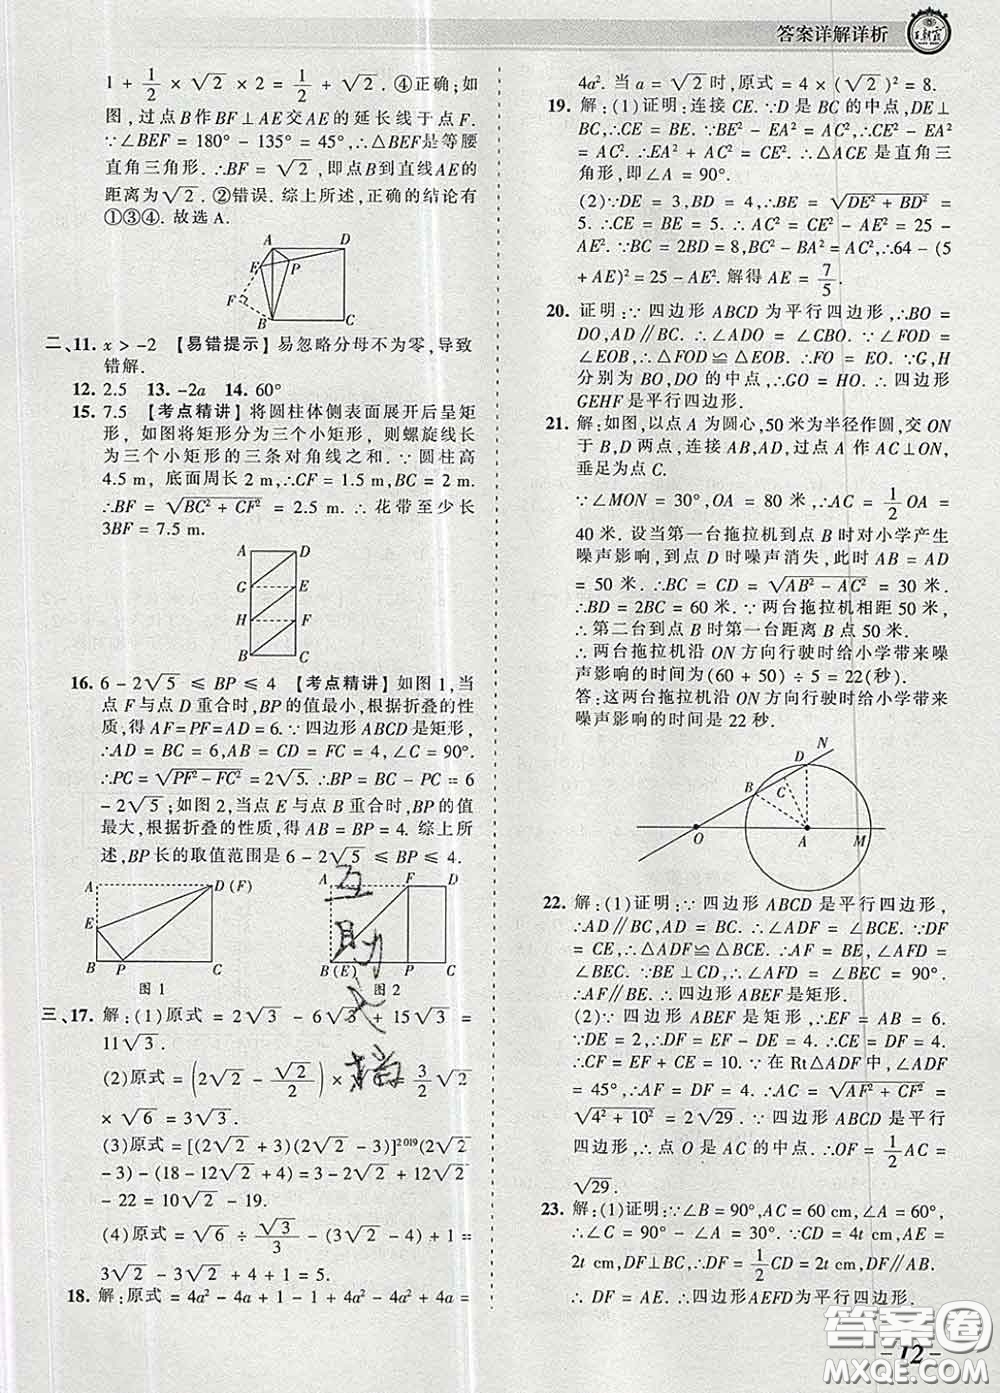 答案详解详析
1 + 1/2 × √2 × 2 = 1/2 + √2. ④正确;如
图,过点B作BF⊥AE交AE的延长线于点F.
∵∠BEF = 180° - 135° = 45°,∴△BEF是等腰
直角三角形.∴BF = √2,即点B到直线AE的
距离为√2. ②错误. 综上所述,正确的结论有
①③④. 故选A.
A D
E P
F
B C
二、11. x > -2 【易错提示】易忽略分母不为零,导致
错解.
12. 2.5 13. -2a 14. 60°
15. 7.5 【考点精讲】将圆柱体侧表面展开后呈矩
形, 如图将矩形分为三个小矩形, 则螺旋线长
为三个小矩形的三条对角线之和.∵圆柱高
4.5 m, 底面周长2 m,∴CF = 1.5 m, BC = 2 m.
∴BF = √(BC² + CF²) = 2.5 m. ∴花带至少长
3BF = 7.5 m.
A D
G E
H F
B C
16. 6 - 2√5 ≤ BP ≤ 4 【考点精讲】如图1,当
点F与点D重合时,BP的值最小,根据折叠的性
质,得AF=PF=AD = 6.∵四边形ABCD是矩形,
∴AD = BC = 6,AB = CD = FC = 4,∠C = 90°.
∴PC = √(PF² - FC²) = 2√5.∴BP = BC - PC = 6
- 2√5;如图2,当点E与点B重合时,BP的值
最大,根据折叠的性质,得AB = BP = 4. 综上所
述,BP长的取值范围是6 - 2√5 ≤ BP ≤ 4.
A D(F) A F D
E
B P C B(E) P C
图1 图2
互助文档
三、17. 解:(1)原式 = 2√3 - 6√3 + 15√3 =
11√3.
(2)原式 = (2√2 - √2/2) × = 3/2 √2
× √6 = 3√3.
(3)原式 = [(2√2 + 3)(2√2 - 3)]²⁰¹⁹(2√2
- 3) - (18 - 12√2 + 4) = 3 - 2√2 + 12√2
- 22 = 10√2 - 19.
(4)原式 = √6 ÷ √3/3 - (3√2 - 4) + 1 =
3√2 - 3√2 + 4 + 1 = 5.
18. 解:原式 = 4a² - 4a + 1 - 1 + 4a² - 4a² + 4a =
4a². 当a = √2时,原式 = 4 × (√2)² = 8.
19. 解:(1)证明:连接CE.∵D是BC的中点,DE⊥
BC,∴CE = BE.∵BE² - EA² = AC²,∴CE² - EA²
= AC².∴EA² + AC² = CE².∴△ACE是直角三
角形,即∠A = 90°.
(2)∵DE = 3,BD = 4,∴BE = √(DE² + BD²) =
5.∴CE = BE = 5.∴AC² = CE² - AE² = 25 -
AE².∵BC = 2BD = 8,BC² - BA² = AC²,∴64 - (5
+ AE)² = 25 - AE². 解得AE = 7/5.
20. 证明:∵四边形ABCD为平行四边形,∴BO =
DO,AD∥BC.∴∠ADO = ∠CBO.∵∠FOD =
∠EOB,∴△FOD≌△EOB.∴FO = EO.∵G,H
分别为BO,DO的中点,∴GO = HO.∴四边形
GEHF是平行四边形.
21. 解:如图,以点A为圆心,50米为半径作圆,交ON
于B,D两点,连接AB,AD,过点A作AC⊥ON,
垂足为点C.
∵∠MON = 30°,OA = 80米,∴AC = 1/2 OA =
40米. 设当第一台拖拉机到点B时对小学产生
噪声影响,到点D时噪声消失,此时AB = AD
= 50米.∴BC = CD = √(AB² - AC²) = 30米.
∴BD = 2BC = 60米.∵两台拖拉机相距50米,
∴第二台到点B时第一台距离B点50米.
∴两台拖拉机沿ON方向行驶时给小学带来噪
声影响的时间为(60 + 50) ÷ 5 = 22(秒).
答:这两台拖拉机沿ON方向行驶时给小学带来
噪声影响的时间是22秒.
N
D
B C
O A M
22. 解:(1)证明:∵四边形ABCD是平行四边形,
∴AD∥BC.∴∠ADF = ∠BCE.∵DF
= CE,∴△ADF≌△BCE.∴AF = BE,∠AFD =
∠BEC.∵BE⊥CD,∴∠AFD = ∠BEC = 90°.
∴AF∥BE.∴四边形ABEF是矩形.
(2)∵四边形ABEF是矩形,∴EF = AB = 6.
∵DE = 2,∴DF = EF - DE = 4.∴CE = DF = 4.
∴CF = EF + CE = 10.∵在Rt△ADF中,∠ADF
= 45°,∴AF = DF = 4.∴AC = √(AF² + CF²) =
√(4² + 10²) = 2√29.∵四边形ABCD是平行
四边形,∴点O是AC的中点.∴OF = 1/2 AC =
√29.
23. 解:(1)证明:∵∠B = 90°,AC = 60 cm,∠A = 60°,
∴∠C = 90° - ∠A = 30°.∵CD = 4t cm,AE =
2t cm,DF⊥BC,∴DF = 1/2 CD = 2t cm,DF∥AE.
∴DF = AE.∴四边形AEFD为平行四边形.
答案圈
MXQE.COM
- 12 -